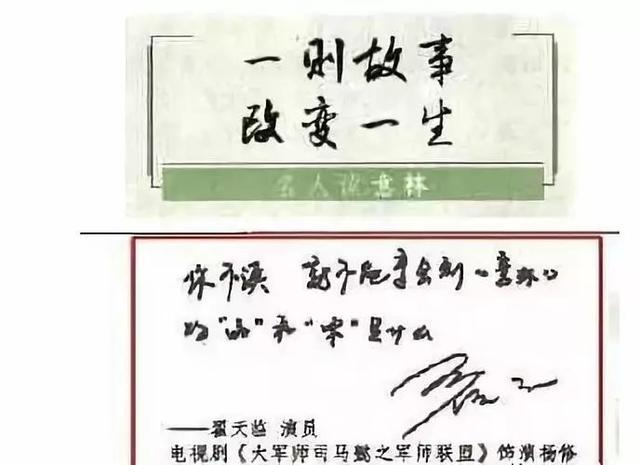 一则故事
改变一生
名人谈意林
你不读 就不能享会到《意林》
的“品”和“味”是什么
——翟天临 演员
电视剧《大军师司马懿之军师联盟》饰演杨修